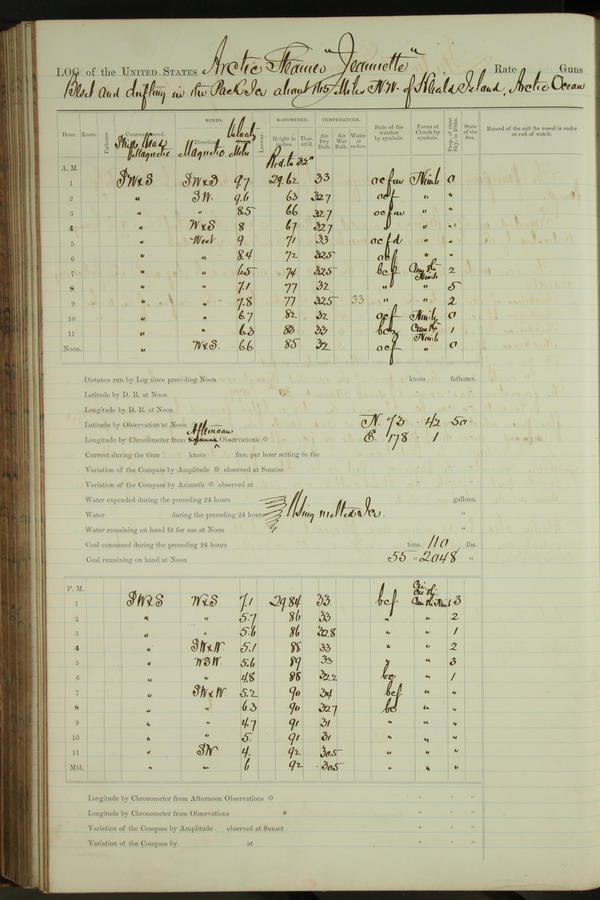 LOG of the UNITED STATES Arctic Steamer "Jeannette" Rate Guns
Beset and drifting in the Pack Ice about 165 Miles N.W. of Herald Island, Arctic Ocean
WINDS. BAROMETER. TEMPERATURE.
Hour. Knots. Fathoms. Courses steered. Ship's Head Magnetic Direction Magnetic Velocity Miles Leeway Height in inches. Ther. att'd. Air Dry Bulb. Air Wet Bulb. Water at surface. State of the weather by symbols. Forms of Clouds by symbols. Prop. of clear Sky, in 10ths. State of the Sea. Record of the sail the vessel is under at end of watch.
Red. to 32°
A. M.
1 SW&S SW&S 9.7 29.62 33 ocfw Nimb 0
2 " SW. 9.6 63 32.7 ocf " "
3 " " 8.5 66 32.7 ocfw " "
4 " W&S 8 67 32.7 " " "
5 " West 9 71 33 ocfd " "
6 " " 8.4 72 32.5 ocf " "
7 " " 6.5 74 32.5 bcf Cum Sti Nimb 2
8 " " 7.1 77 32 " " 5
9 " " 7.8 77 32.5 33 " " 2
10 " " 6.7 82 32 ocf Nimb 0
11 " " 6.3 83 33 bcf Cum Sti Nimb 1
Noon. " W&S. 6.6 85 32 ocf " 0
Distance run by Log since preceding Noon knots fathoms.
Latitude by D. R. at Noon
Longitude by D. R. at Noon
Latitude by Observation at Noon N. 73 42 50
Longitude by Chronometer from Afternoon Observations E. 178 1
Current during the time knots fms. per hour setting to the
Variation of the Compass by Amplitude observed at Sunrise
Variation of the Compass by Azimuth observed at
Water expended during the preceding 24 hours gallons.
Water during the preceding 24 hours Using melted Ice. "
Water remaining on hand fit for use at Noon "
Coal consumed during the preceding 24 hours tons. 110 lbs.
Coal remaining on hand at Noon 55 " 2048 "
P. M.
1 SW&S W&S 7.1 29.84 33 bcf Cum Sti Nimb 3
2 " " 5.7 86 33 " " 2
3 " " 5.6 86 32.8 " " 1
4 " SW&W 5.1 88 33 " " 2
5 " WSW 5.6 89 33 " " 3
6 " " 4.8 88 32.2 bc " 1
7 " SW&W 5.2 90 34 bcf " "
8 " " 6.3 90 32.7 bc " "
9 " " 4.7 91 31 " " "
10 " " 5. 91 31 " " "
11 " SW 4. 92 30.5 " " "
Mid. " " 6 92 30.5 " " "
Longitude by Chronometer from Afternoon Observations
Longitude by Chronometer from Observations *
Variation of the Compass by Amplitude observed at Sunset
Variation of the Compass by at